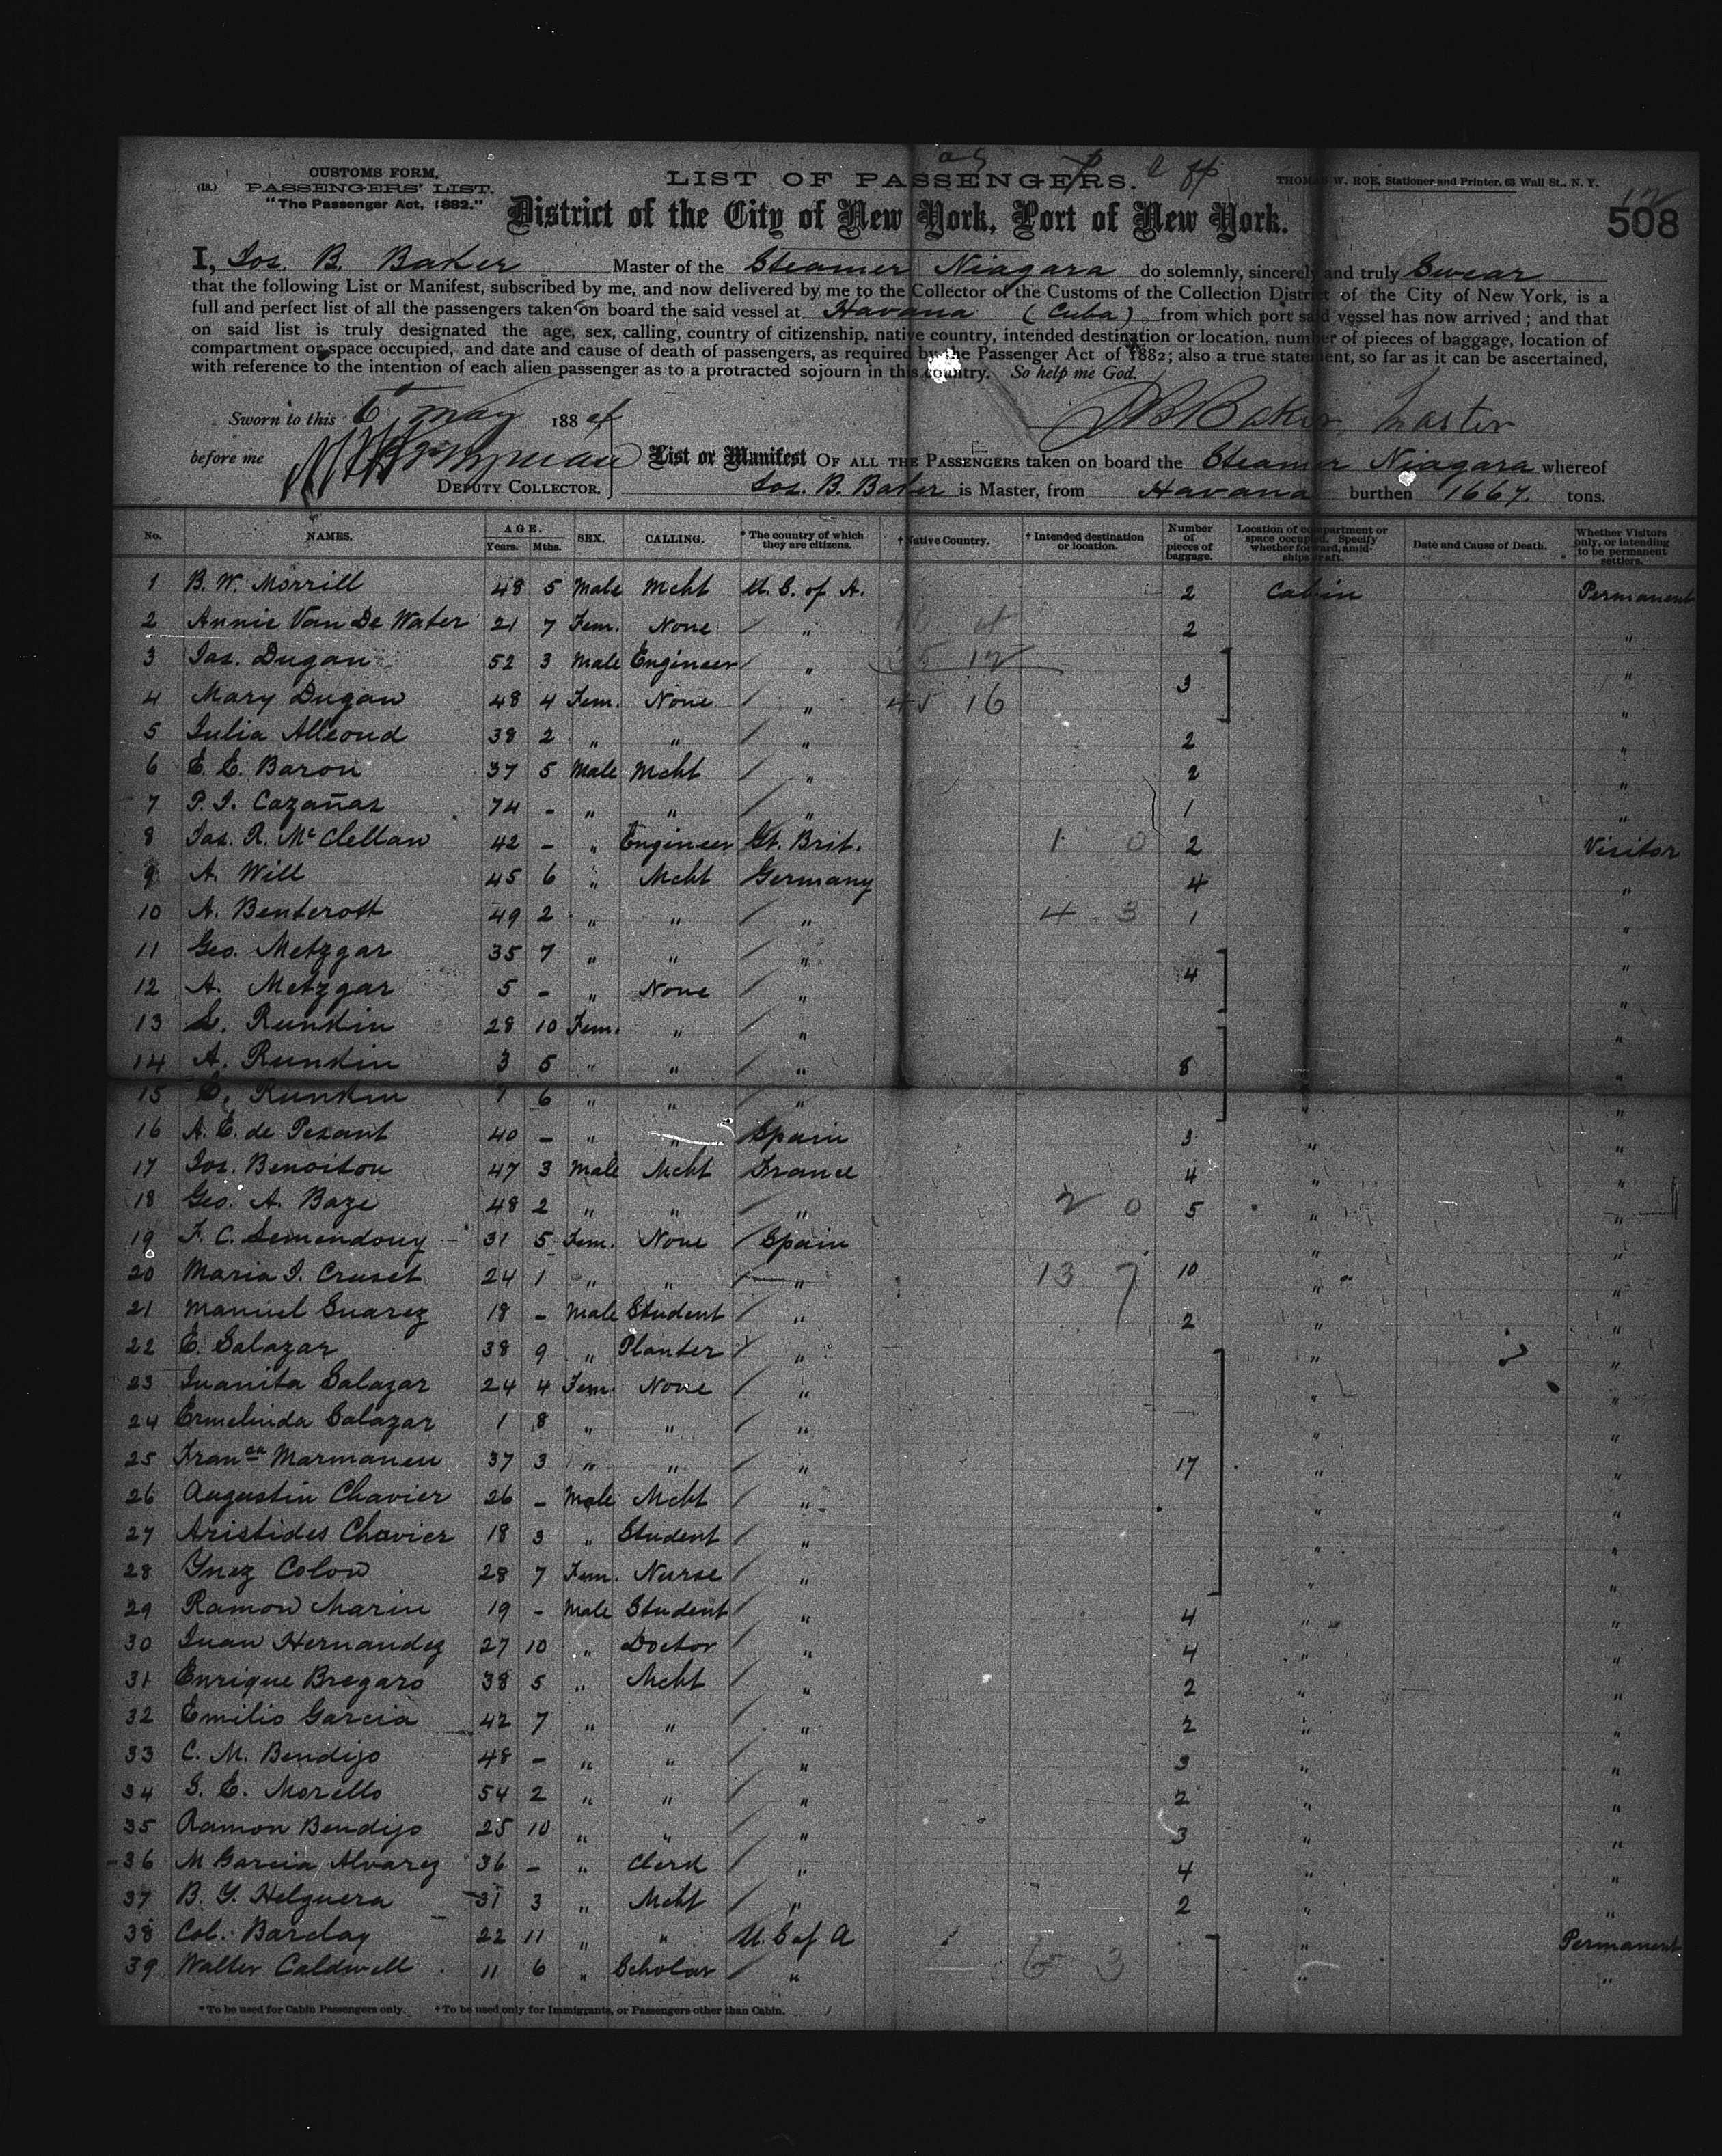 CUSTOMS FORM.
(18.) PASSENGERS' LIST.
"The Passenger Act, 1882."
LIST OF PASSENGERS.
THOMAS W. ROE, Stationer and Printer, 63 Wall St., N. Y.
District of the City of New York, Port of New York.
508
I, Jos. B. Baker Master of the Steamer Niagara do solemnly, sincerely and truly Swear
that the following List or Manifest, subscribed by me, and now delivered by me to the Collector of the Customs of the Collection District of the City of New York, is a
full and perfect list of all the passengers taken on board the said vessel at Havana (Cuba) from which port said vessel has now arrived; and that
on said list is truly designated the age, sex, calling, country of citizenship, native country, intended destination or location, number of pieces of baggage, location of
compartment or space occupied, and date and cause of death of passengers, as required by the Passenger Act of 1882; also a true statement, so far as it can be ascertained,
with reference to the intention of each alien passenger as to a protracted sojourn in this country. So help me God.
Sworn to this 6 May 1884 JB Baker Master
before me
DEPUTY COLLECTOR.
List or Manifest OF ALL THE PASSENGERS taken on board the Steamer Niagara whereof
Jos. B. Baker is Master, from Havana burthen 1667 tons.
No. NAMES. AGE. Years. Mths. SEX. CALLING. * The country of which they are citizens. † Native Country. † Intended destination or location. Number of pieces of baggage. Location of compartment or space occupied. Specify whether forward, amidships or aft. Date and Cause of Death. Whether Visitors only, or intending to be permanent settlers.
1 B. W. Morrill 48 5 Male Mcht U. S. of A. 2 Cabin Permanent
2 Annie Van De Water 21 7 Fem. None / " 2 "
3 Jas. Dugan 52 3 Male Engineer / " 35 12 "
4 Mary Dugan 48 4 Fem. None / " 45 16 3 "
5 Julia Alleoud 38 2 " " / " 2 "
6 E. E. Baron 37 5 Male Mcht / " 2 "
7 P. J. Cazañas 74 - " " / " 1 "
8 Jas. R. McClellan 42 - " Engineer Gt. Brit. 1 0 2 Visitor
9 A. Will 45 6 " Mcht Germany 4 "
10 A. Benterott 49 2 " " / " 4 3 1 "
11 Geo. Metzgar 35 7 " " / " 4 "
12 A. Metzgar 5 - " None / " "
13 L. Runkin 28 10 Fem. " / " "
14 A. Runkin 3 5 " " / " 8 "
15 E. Runkin 7 6 " " / " " "
16 A. E. de Pesant 40 - " " Spain 3 " "
17 Jos. Benoiton 47 3 Male Mcht France 4 " "
18 Geo. A. Baze 48 2 " " / " 2 0 5 " "
19 F. C. Semendouy 31 5 Fem. None / Spain " "
20 Maria J. Cruset 24 1 " " / " 13 7 10 " "
21 Manuel Suarez 18 - Male Student / " 2 " "
22 E. Salazar 38 9 " Planter / " " "
23 Juanita Salazar 24 4 Fem. None / " " "
24 Ermelinda Salazar 1 8 " " / " " "
25 Fran ca Marmaneu 37 3 " " / " 17 " "
26 Augustin Chavier 26 - Male Mcht / " " "
27 Aristides Chavier 18 3 " Student / " " "
28 Ynez Colon 28 7 Fem. Nurse / " " "
29 Ramon Marin 19 - Male Student / " 4 " "
30 Juan Hernandez 27 10 " Doctor / " 4 " "
31 Enrique Bregaro 38 5 " Mcht / " 2 " "
32 Emilio Garcia 42 7 " " / " 2 " "
33 C. M. Bendijo 48 - " " / " 3 " "
34 J. E. Morello 54 2 " " / " 2 " "
35 Ramon Bendijo 25 10 " " / " 3 " "
36 M Garcia Alvarez 36 - " Clerk / " 4 " "
37 B. Y. Helguera 31 3 " Mcht / " 2 " "
38 Col. Barclay 22 11 " " U. S of A " Permanent
39 Walter Caldwell 11 6 " Scholar / " 6 3 " "
* To be used for Cabin Passengers only. † To be used only for Immigrants, or Passengers other than Cabin.